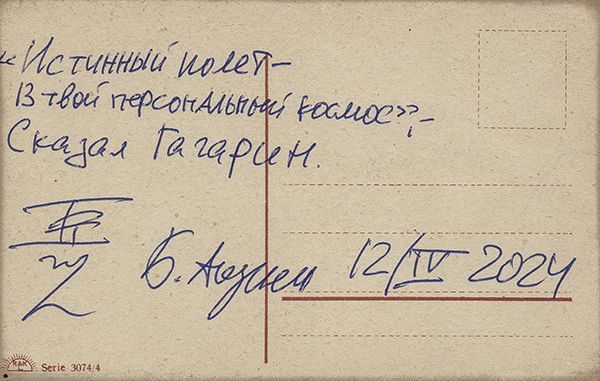 «Истинный полет –
В твой персональный космос», –
Сказал Гагарин.
Б. 12/IV 2024
Serie 3074/4